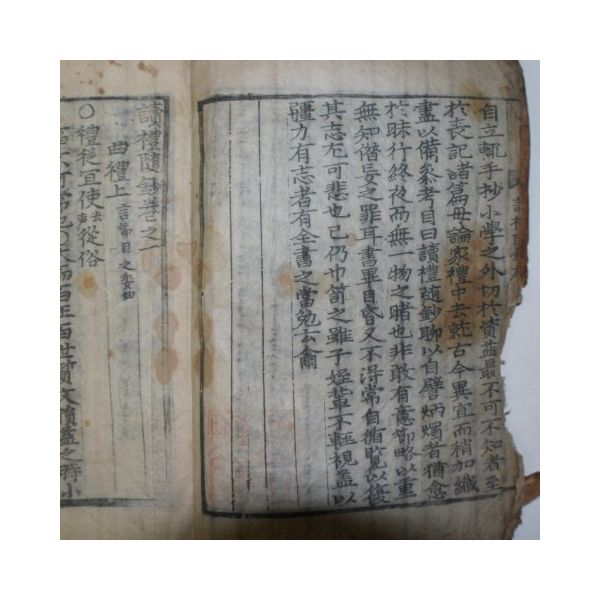 自立輒手抄小學之外切於資益最不可不知者至
於喪記諸篇毋論家禮中去就古今異宜而稍加纖
盡以備叅考目曰讀禮隨鈔聊以自譬炳燭者猶愈
於昧行終夜而無一物之睹也非敢有意節略以重
無知僭妄之罪耳書畢目昏又不得常自循覽以後
其志左可悲也已仍巾笥之雖子姪輩不輕視盖以
疆力有志者有全書之當勉云爾
讀禮隨鈔卷之一
曲禮上 言節目之委曲
○禮從宜使去聲從俗
百世質文損益之時小